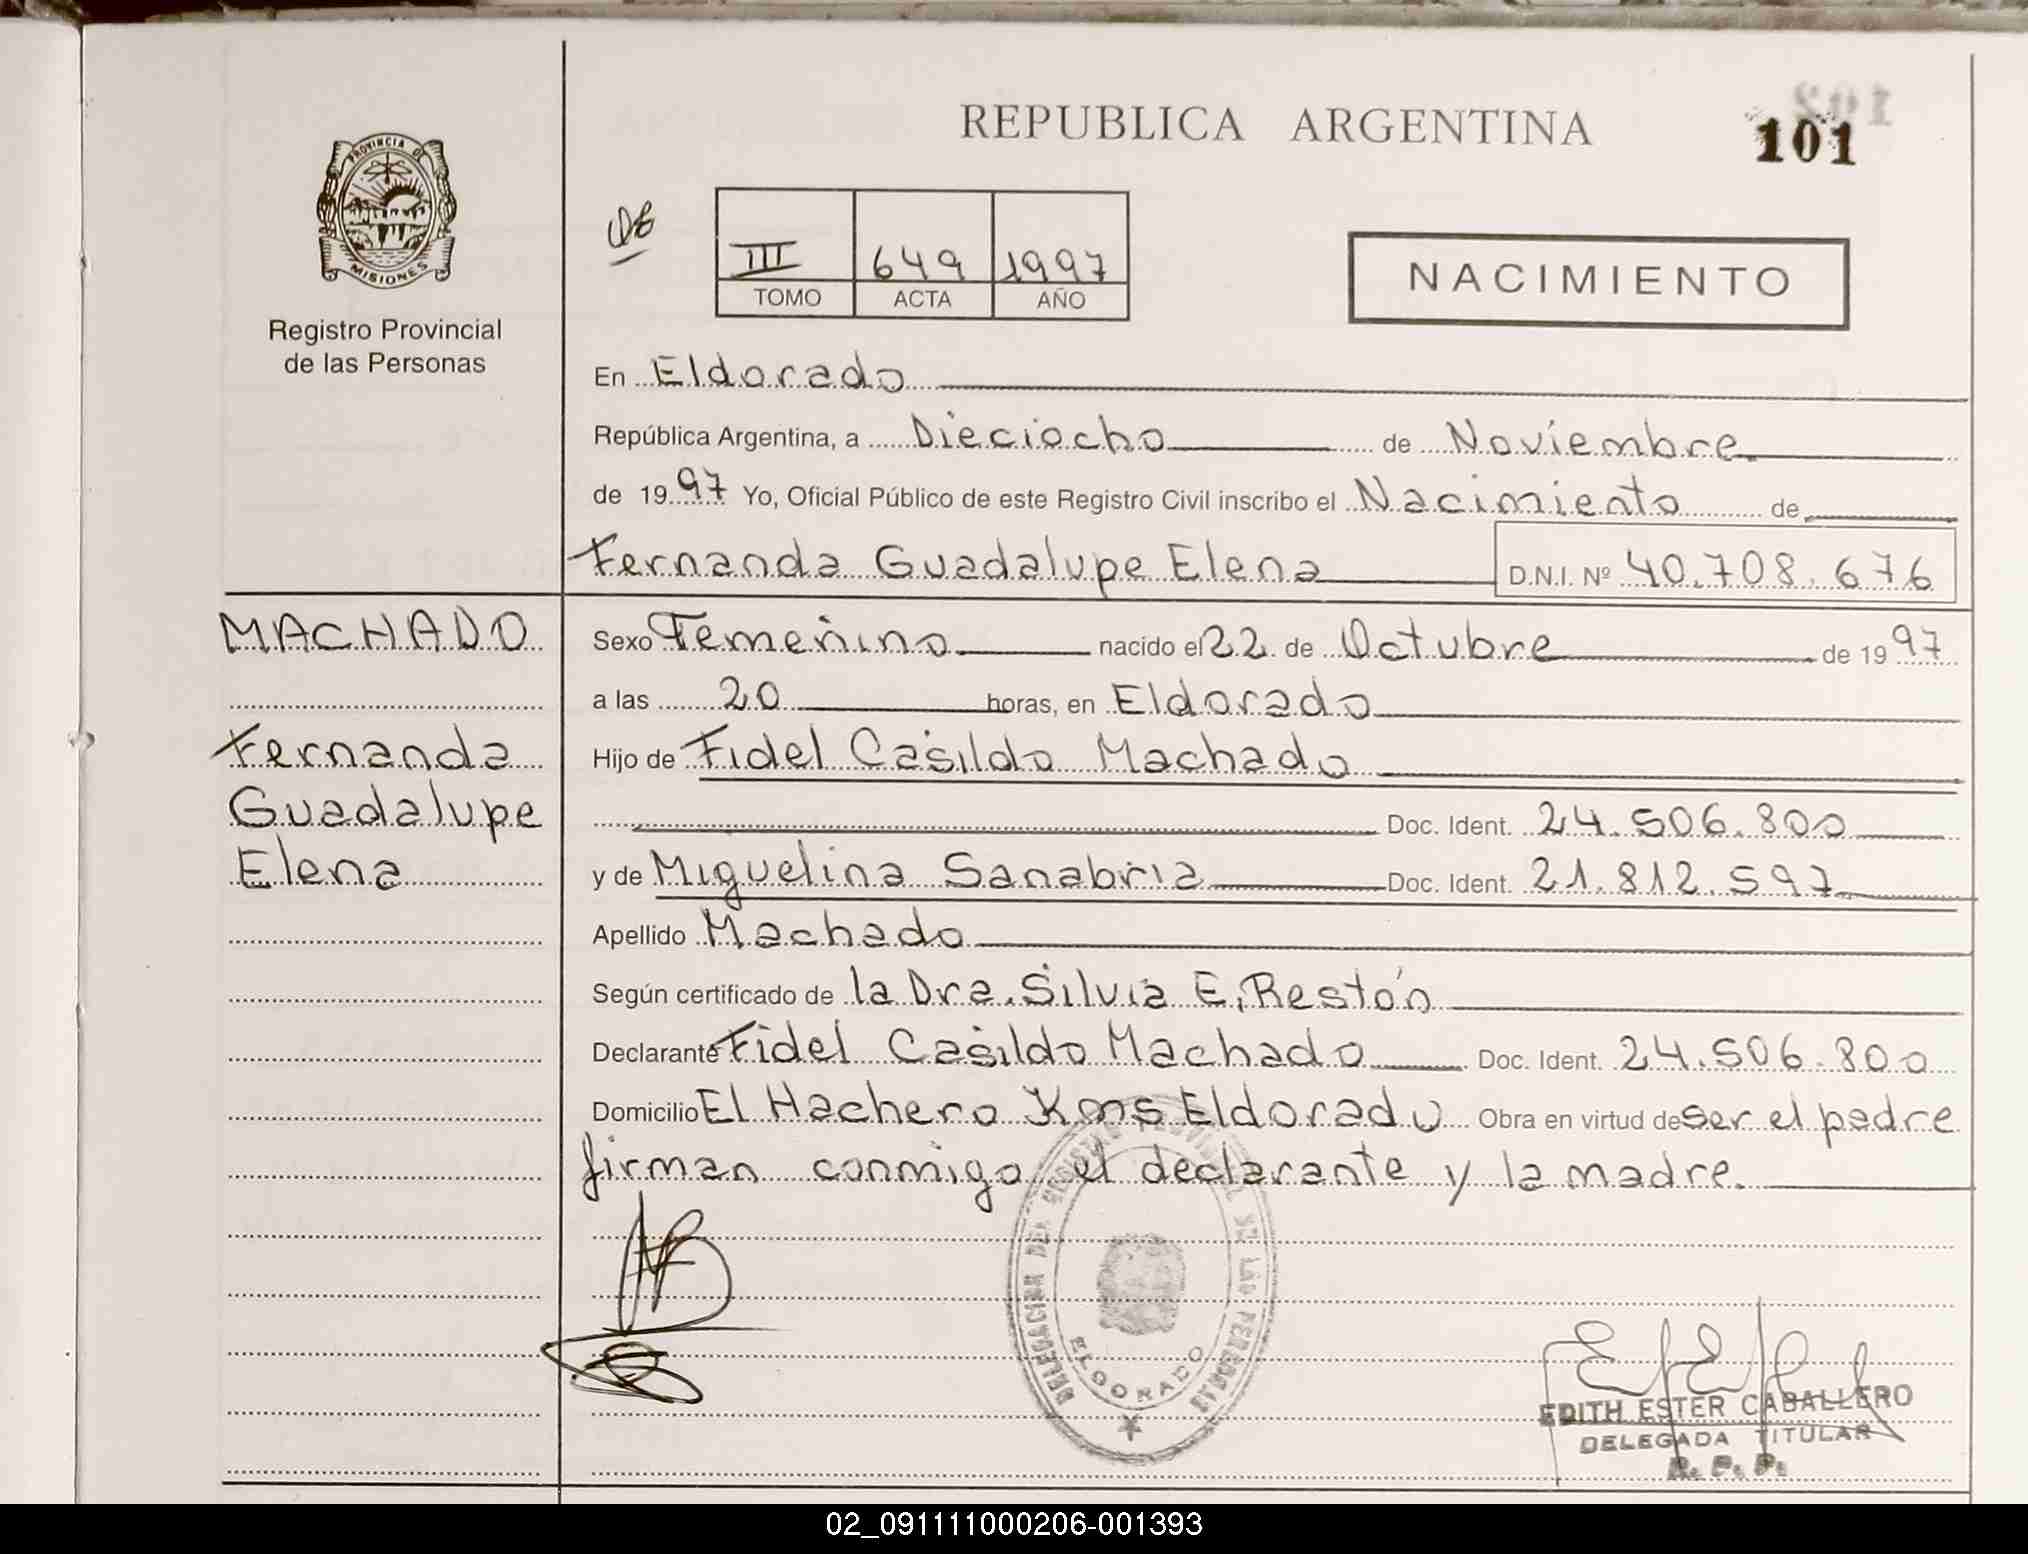 REPUBLICA ARGENTINA
101
PROVINCIA DE
MISIONES
Registro Provincial
de las Personas
III 649 1997
TOMO ACTA AÑO
NACIMIENTO
En Eldorado
República Argentina, a Dieciocho de Noviembre
de 1997 Yo, Oficial Público de este Registro Civil inscribo el Nacimiento de
Fernanda Guadalupe Elena D.N.I. Nº 40.708.676
MACHADO
Fernanda
Guadalupe
Elena
Sexo Femenino nacido el 22 de Octubre de 1997
a las 20 horas, en Eldorado
Hijo de Fidel Casildo Machado
Doc. Ident. 24.506.800
y de Miguelina Sanabria Doc. Ident. 21.812.597
Apellido Machado
Según certificado de la Dra. Silvia E. Restón
Declarante Fidel Casildo Machado Doc. Ident. 24.506.800
Domicilio El Hachero Kms Eldorado Obra en virtud de ser el padre
firman conmigo el declarante y la madre.
DELEGACION DEL REGISTRO PROVINCIAL DE LAS PERSONAS
ELDORADO
EDITH ESTER CABALLERO
DELEGADA TITULAR
R. P. P.
02_091111000206-001393